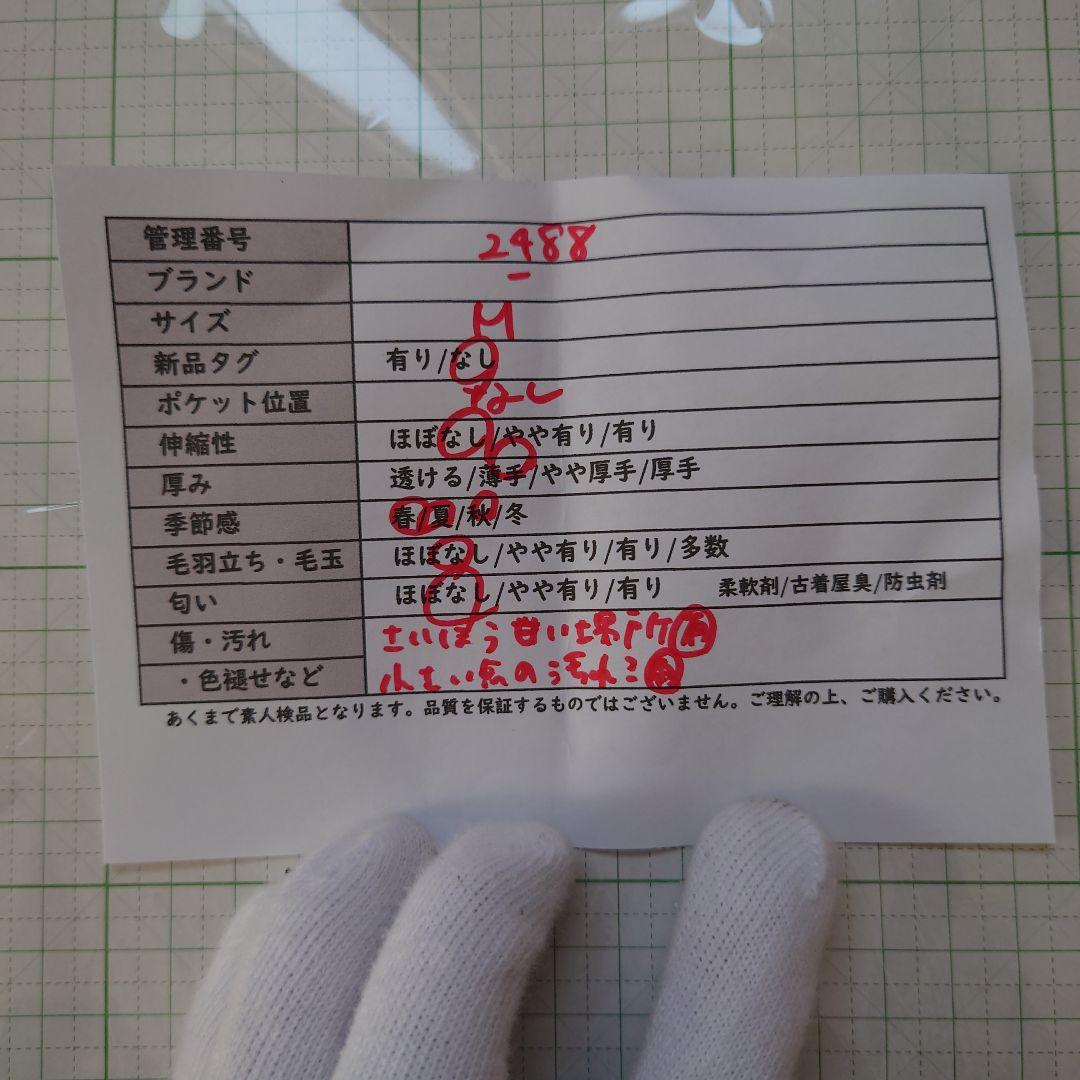 管理番号 2488
ブランド ー
サイズ M
新品タグ 有り/なし
ポケット位置 なし
伸縮性 ほぼなし/やや有り/有り
厚み 透ける/薄手/やや厚手/厚手
季節感 春/夏/秋/冬
毛羽立ち・毛玉 ほぼなし/やや有り/有り/多数
匂い ほぼなし/やや有り/有り 柔軟剤/古着屋臭/防虫剤
傷・汚れ さいほう甘い場所有
・色褪せなど 小さい点の汚れ
あくまで素人検品となります。品質を保証するものではございません。ご理解の上、ご購入ください。